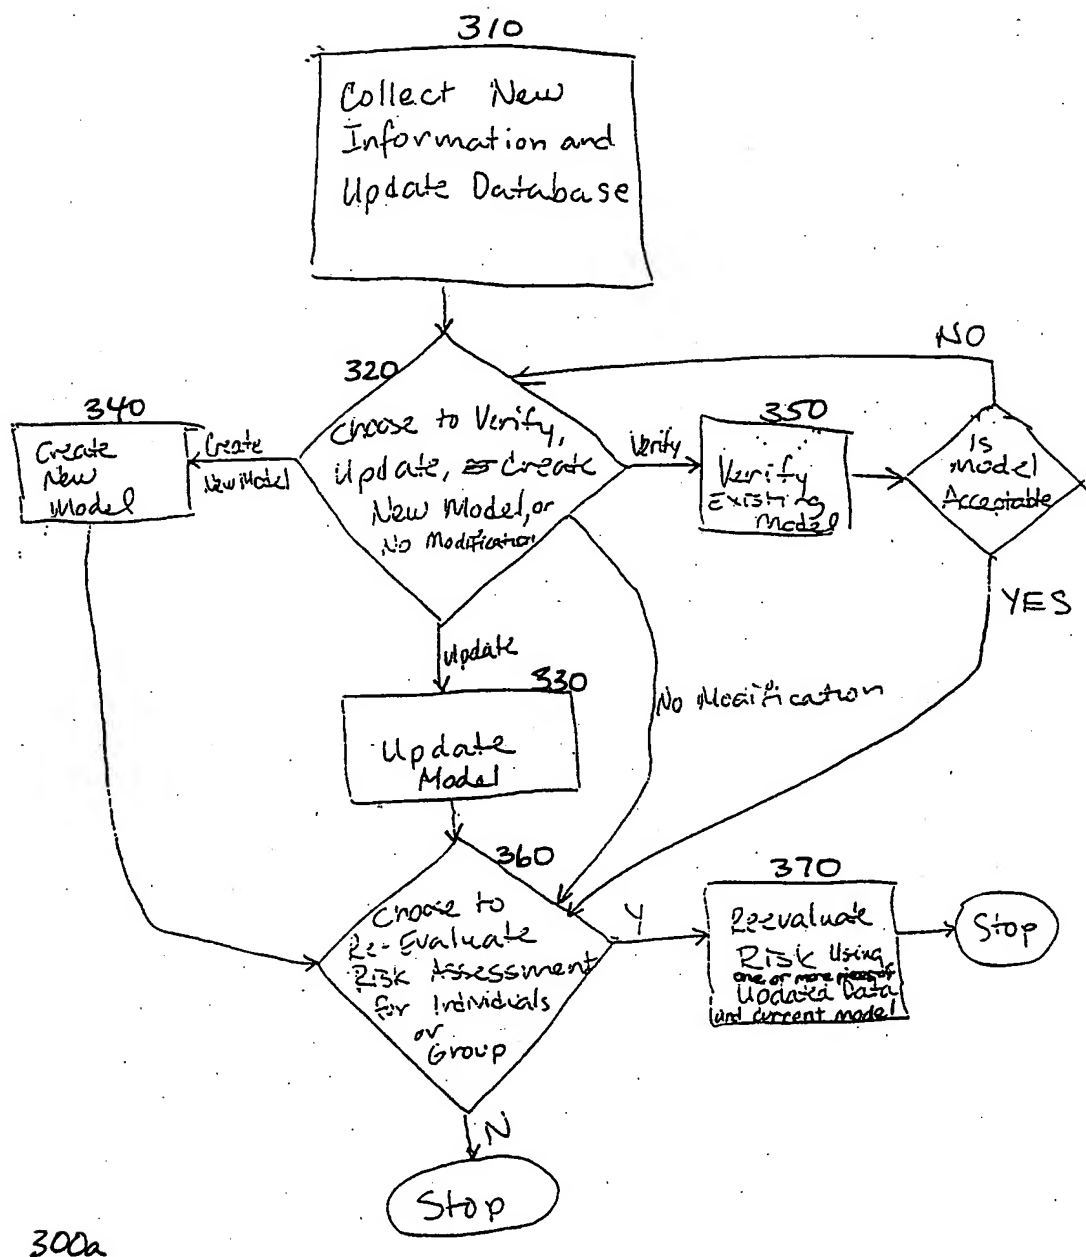 310
Collect New
Information and
Update Database
NO
320
Choose to Verify,
Update, Create
New Model, or
No Modification
340
Create
New
Model
Create
New Model
Verify
350
Verify
Existing
Model
Is
Model
Acceptable
YES
Update
330
Update
Model
No Modification
360
Choose to
Re-Evaluate
Risk Assessment
for Individuals
or
Group
Y
370
Reevaluate
Risk Using
one or more pieces of
Updated Data
and current model
Stop
N
Stop
300a